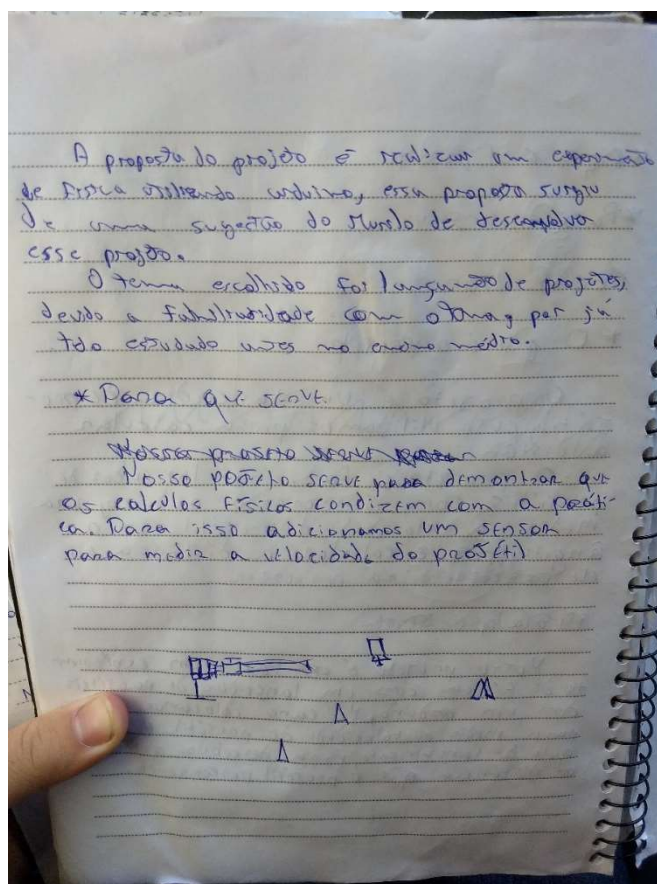 A proposta do projeto é realizar um experimento
de física utilizando arduino, essa proposta surgiu
de uma sugestão do Murilo de
esse projeto.
O tema escolhido foi lançamento de projeteis,
devido a familiaridade com o tema, por já
tdo estudado antes no ensino médio.
* Para que serve.
Nosso projeto serve
Nosso projeto serve para demontrar que
os calculos físicos condizem com a práti-
ca. Para isso adicionamos um sensor
para medir a velocidade do projétil